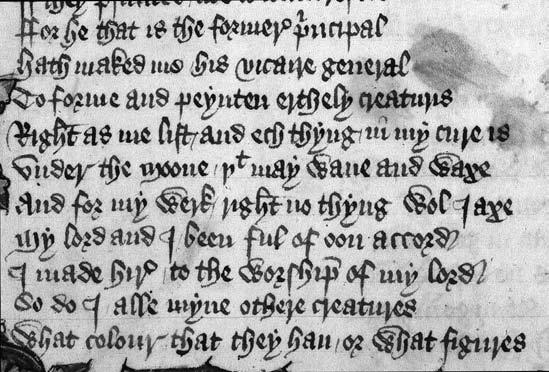 ffor he that is the former principal
Hath maked me his vicaire general
To forme and peynten erthely creaturis
Right as me list / and ech thyng in my cure is
Vnder the moone / þt may wane and waxe
And for my werk / right no thyng wol I axe
My lord and I been ful of oon accord
I made hir to the worship of my lord
So do I alle myne othere creatures
What colour that they han / or what figures